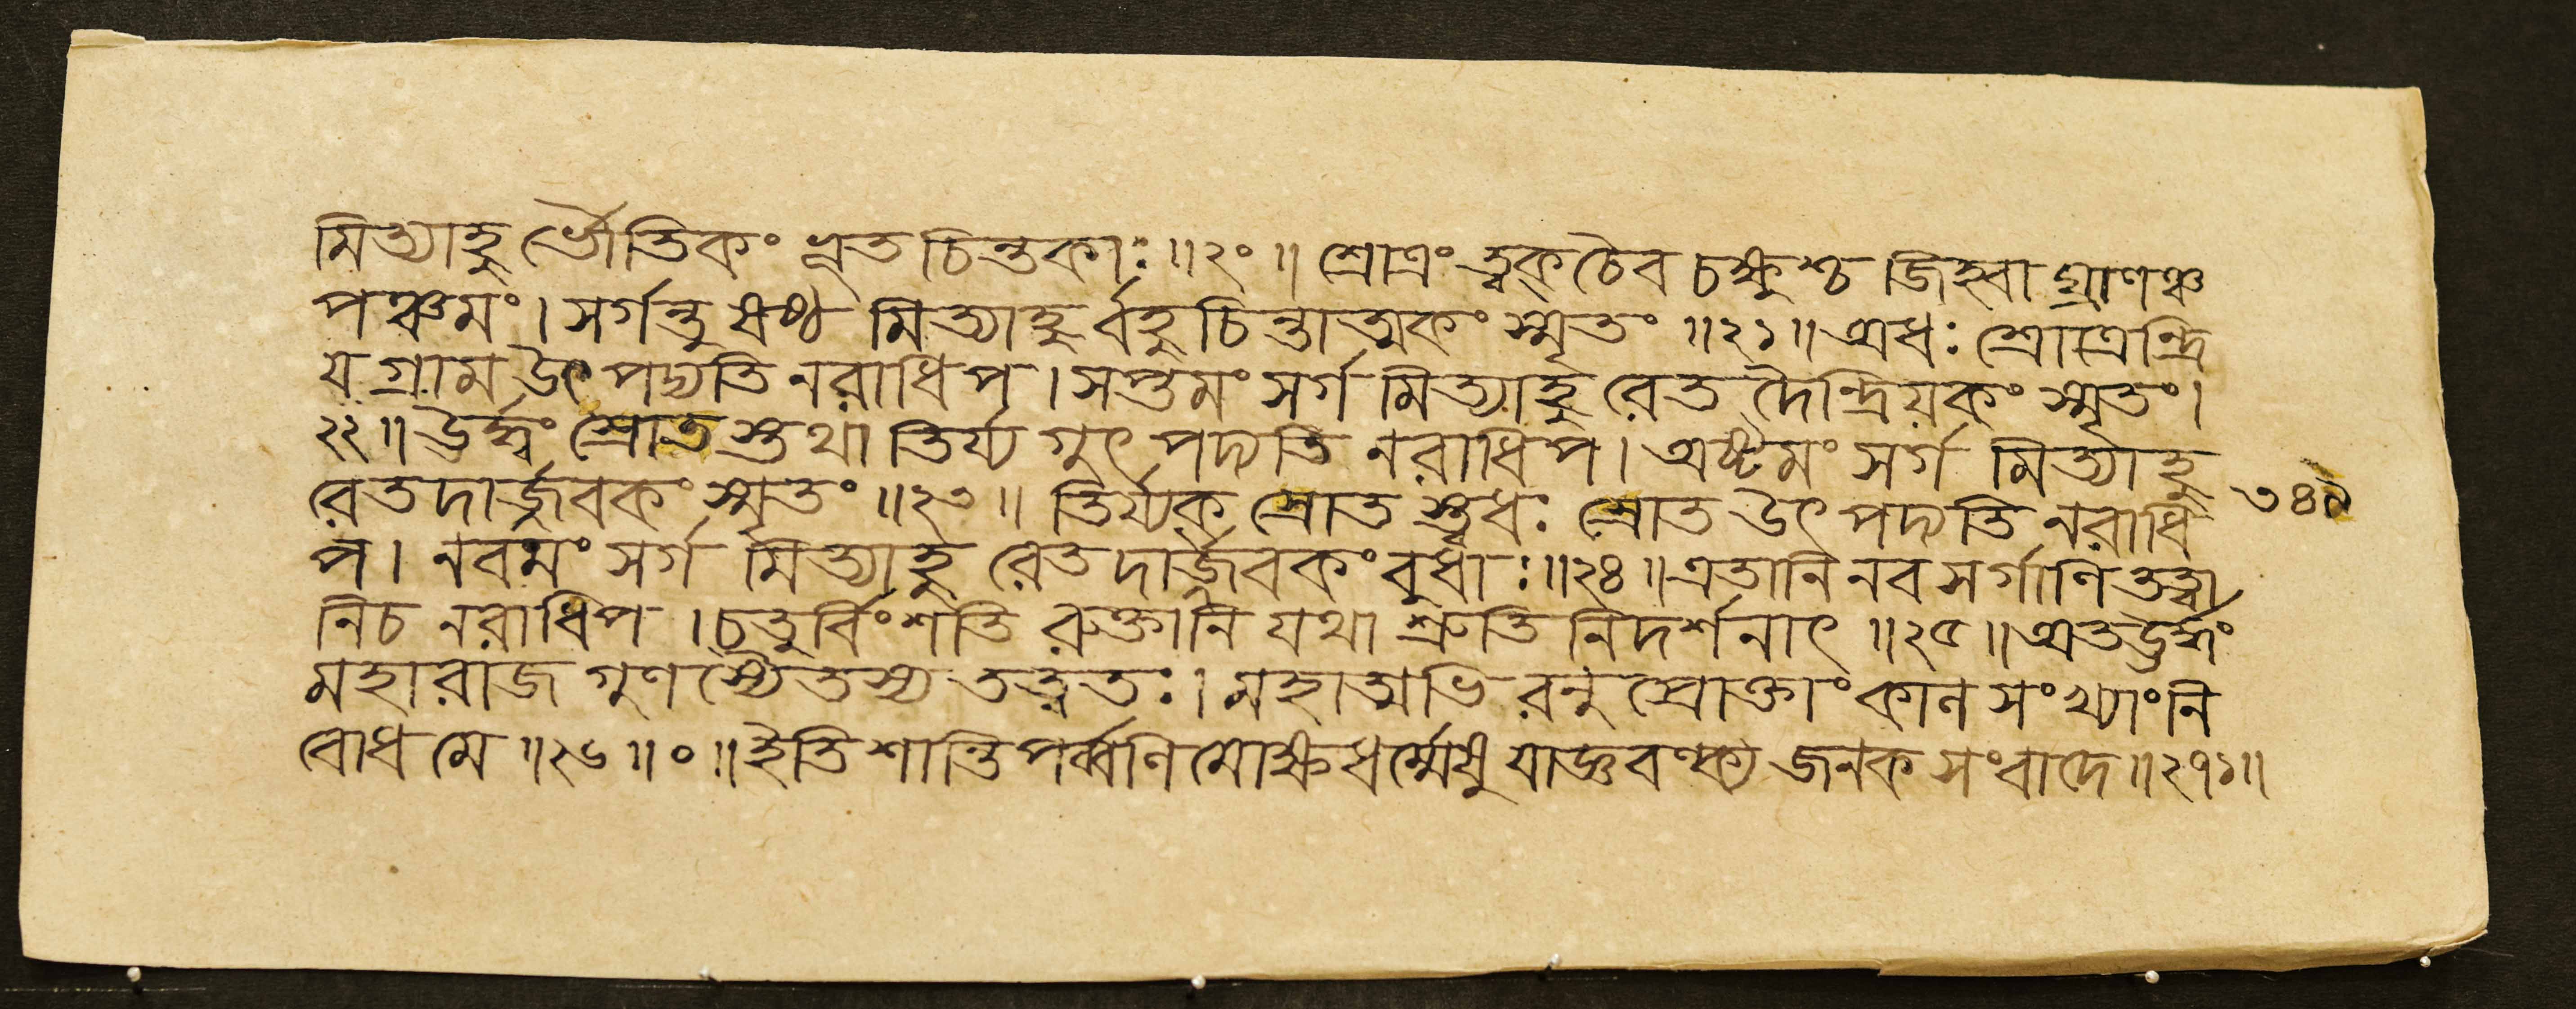 মিত্যাহু র্ভৌতিকং ভূতচিন্তকাঃ॥২০॥ শ্রোত্রং ত্বক্ চৈব চক্ষুশ্চ জিহ্বা ঘ্রাণঞ্চ
পঞ্চমং। সর্গন্তু ষষ্ঠ মিত্যাহু র্বহুচিন্তাত্মকং স্মৃতং॥২১॥অধঃ শ্রোত্রেন্দ্রি
য় গ্রাম উৎপদ্যতি নরাধিপ। সপ্তমং সর্গ মিত্যাহু রেত দৈন্দ্রিয়কং স্মৃতং।
২২॥ ঊর্দ্ধ্বং শ্রোত স্তথা তির্য্য গুৎপদ্যতি নরাধিপ। অষ্টমং সর্গ মিত্যাহু
রেতদার্জ্জবকং স্মৃতং॥২৩॥ তির্য্যক্ স্রোত স্ত্বধঃ স্রোত উৎপদ্যতি নরাধি
প। নবমং সর্গ মিত্যাহু রেতদার্জ্জবকং বুধাঃ॥২৪॥এতানি নব সর্গাণি তত্ত্বা
নি চ নরাধিপ। চতুর্বিংশতি রুক্তানি যথা শ্রুতি নিদর্শনাৎ॥২৫॥অত ঊর্দ্ধ্বং
মহারাজ গুণ স্যৈতস্য তত্ত্বতঃ। মহাত্মভি রনু প্রোক্তাং কাল সংখ্যাং নি
বোধ মে॥২৬॥০॥ইতি শান্তিপর্ব্বণি মোক্ষধর্ম্মেষু যাজ্ঞবল্ক্য জনক সংবাদে॥২৭১॥
৩৪৯